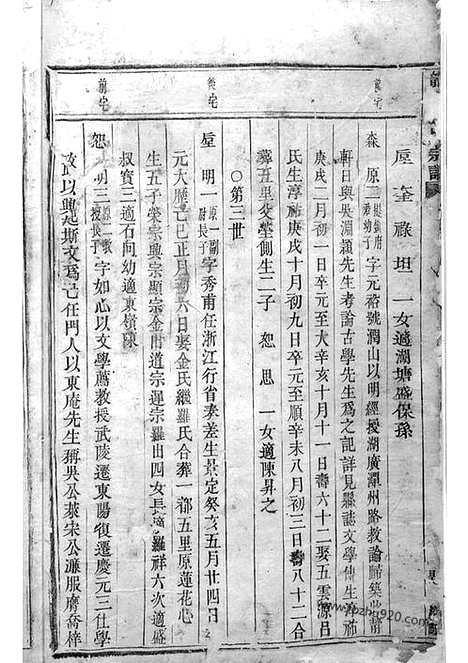 垕 奎 祿 坦 一女適湖塘盛保孫
森 原二提鎮府君幼子字元裕號潤山以明經授湖廣潭州路教諭歸築此君
軒日與吳淵潁先生考論古學先生爲之記詳見縣誌文學傳生淳祐
庚戌二月初一日卒元至大辛亥十月十一日壽六十二娶五雲源呂
氏生淳祐庚戌十月初九日卒元至順辛未八月初三日壽八十二合
葬五里交塋側生二子 恕 思 一女適陳昇之
○第三世
垕 明一原一副尉長子字秀甫任浙江行省奏差生景定癸亥五月廿四日
元大歷己巳正月初六日娶金氏繼羅氏合葬一都五里原蓮花心
生五子榮宗興宗顯宗金出道宗遲宗羅出四女長適羅祥六次適盛
叔實三適石向幼適東嶺陳
恕 明三原二教授長子字如心以文學薦教授武陵遷東陽復遷慶元三仕學
政以興起斯文爲己任門人以東庵先生稱吳公萊宋公濂服膺喬梓
前宅
後宅
前宅
宗譜